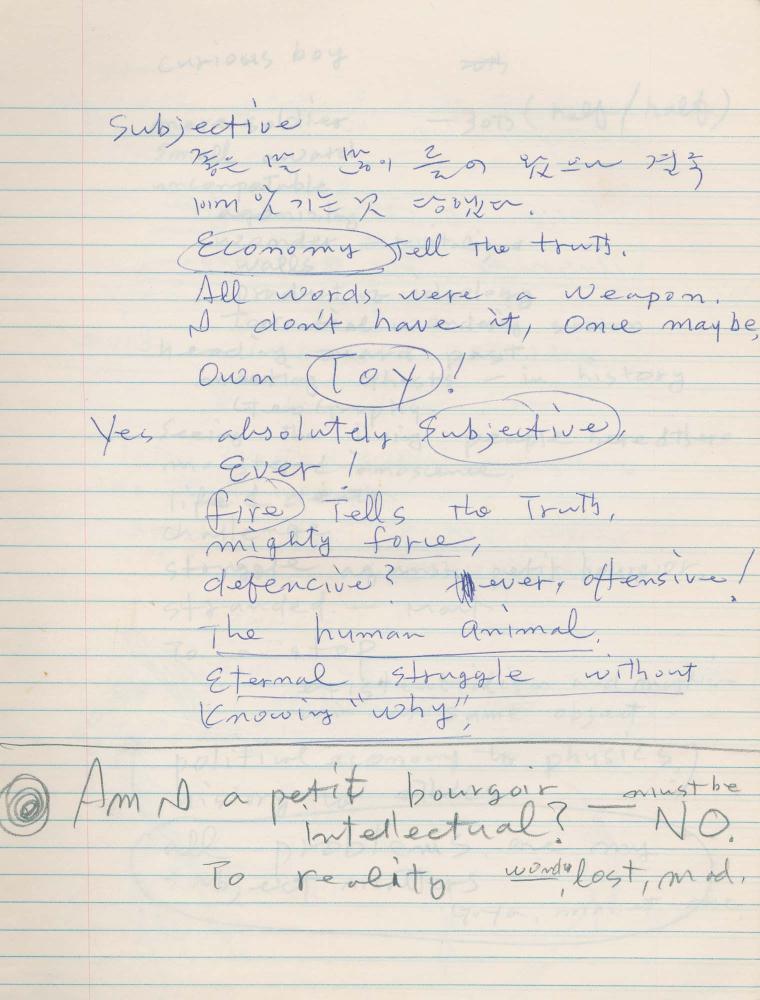 Subjective
좋은 말 많이 들어 왔으나 결국
Economy Tell the truth.
All words were a weapon.
I don't have it, Once maybe,
Own Toy!
Yes absolutely Subjective,
Ever!
fire Tells the Truth,
mighty force,
defencive? ever, offensive!
The human animal.
Eternal struggle without
Knowing "why",
Am I a petit bourgoir — must be
Intellectual? NO.
To reality words, lost, mad.